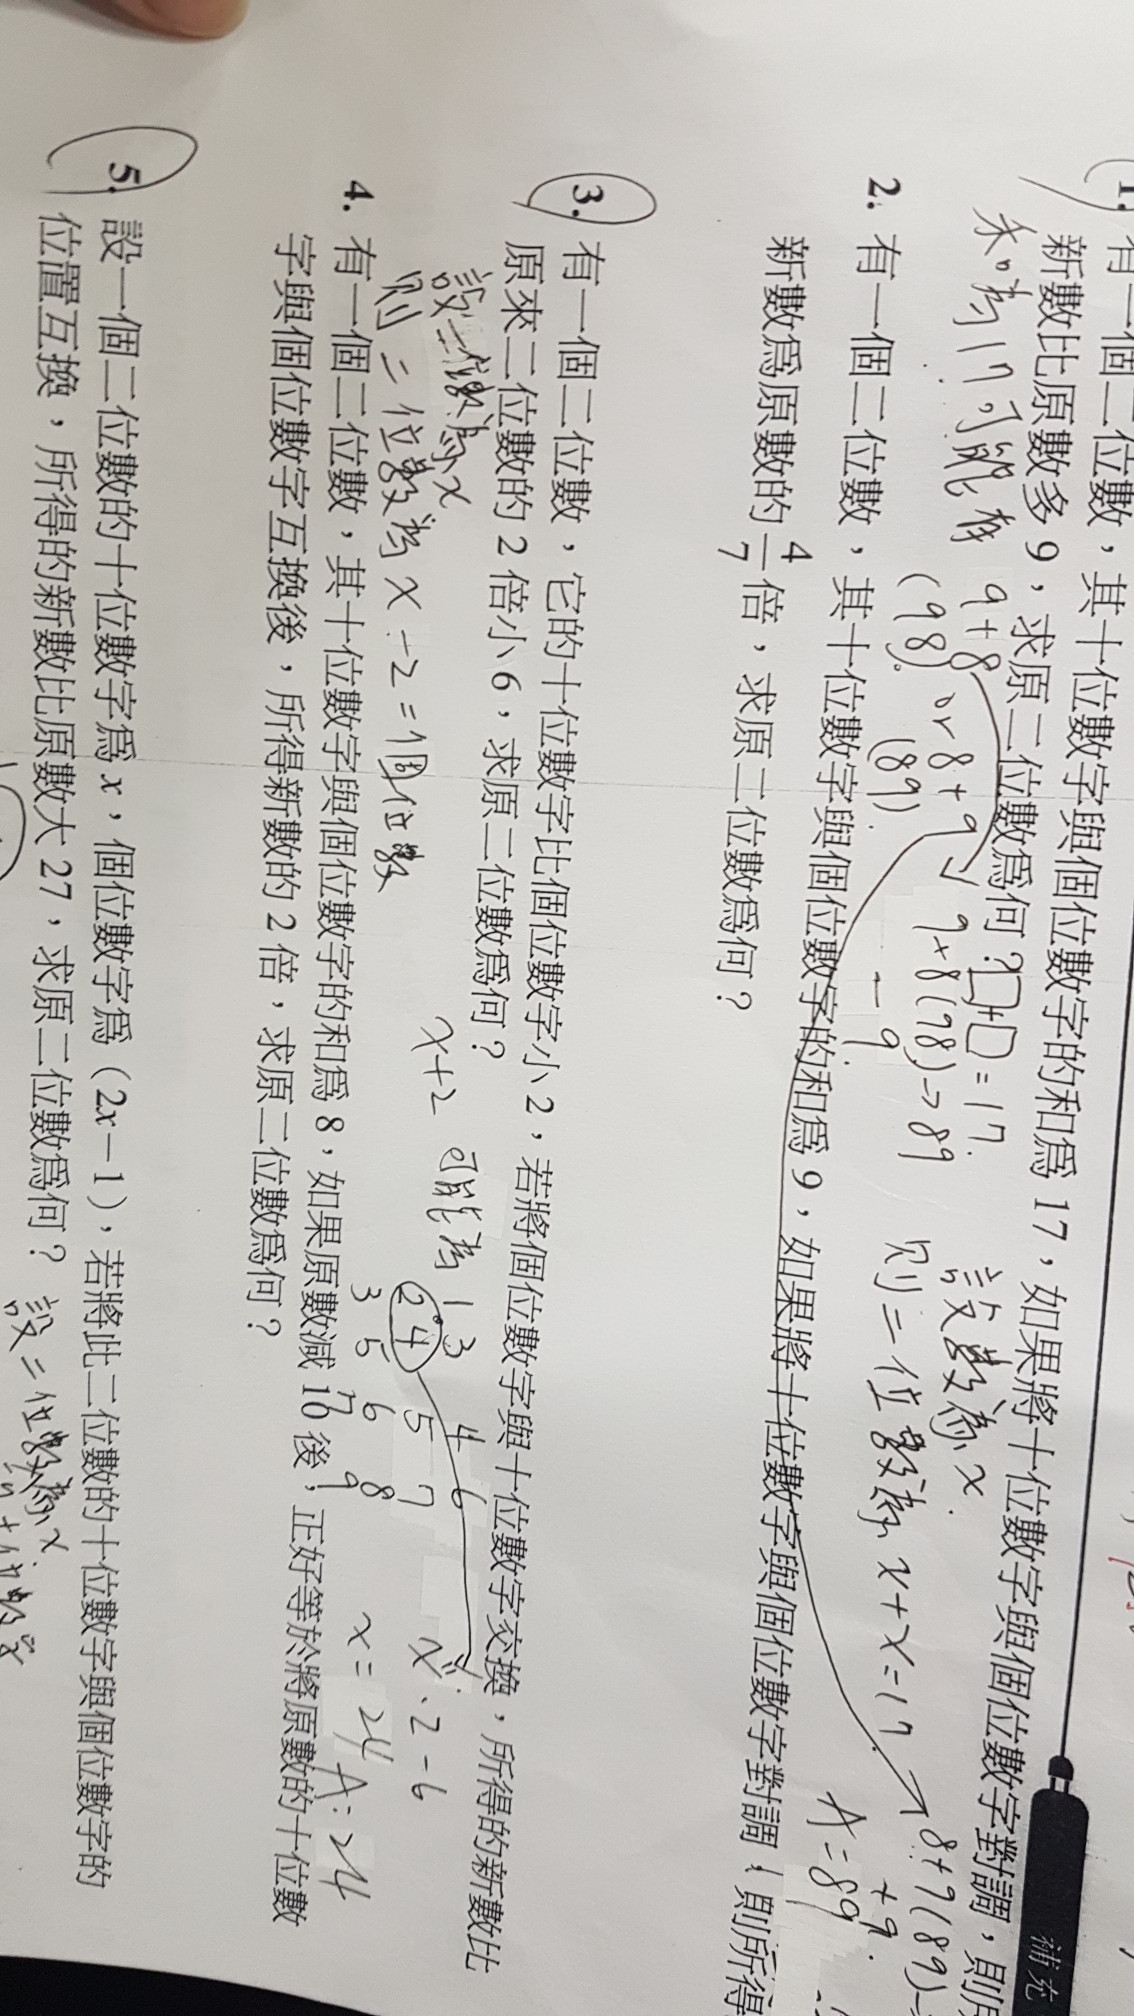 補充
1. 有一個二位數，其十位數字與個位數字的和為 17，如果將十位數字與個位數字對調，則所
新數比原數多 9，求原二位數為何？
和為17可能有 9+8 or 8+9
(98) (89)
□+□=17
9+8(98)→89
-9
設數為x
則二位數為 x+x=17
8+9(89)→
+9
A=89
2. 有一個二位數，其十位數字與個位數字的和為 9，如果將十位數字與個位數字對調，則所得
新數為原數的 4/7 倍，求原二位數為何？
3. 有一個二位數，它的十位數字比個位數字小 2，若將個位數字與十位數字交換，所得的新數比
原來二位數的 2 倍小 6，求原二位數為何？
設一個數為x
則二位數為 x-2=個位數
x+2 可能為 1 3 4 6
2 4 5 7
3 5 6 8
7 9
x·2-6
x=24
A:24
4. 有一個二位數，其十位數字與個位數字的和為 8，如果原數減 10 後，正好等於將原數的十位數
字與個位數字互換後，所得新數的 2 倍，求原二位數為何？
5. 設一個二位數的十位數字為 x，個位數字為（2x－1），若將此二位數的十位數字與個位數字的
位置互換，所得的新數比原數大 27，求原二位數為何？
設二位數為x